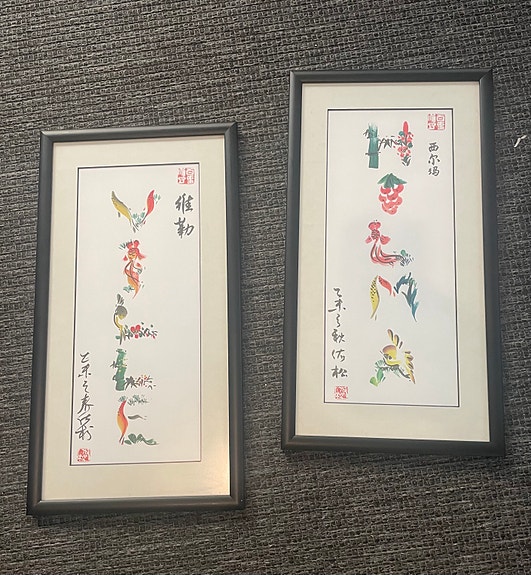 维勒
VILLE
乙未之春
西尔玛
HILMA
乙未之秋